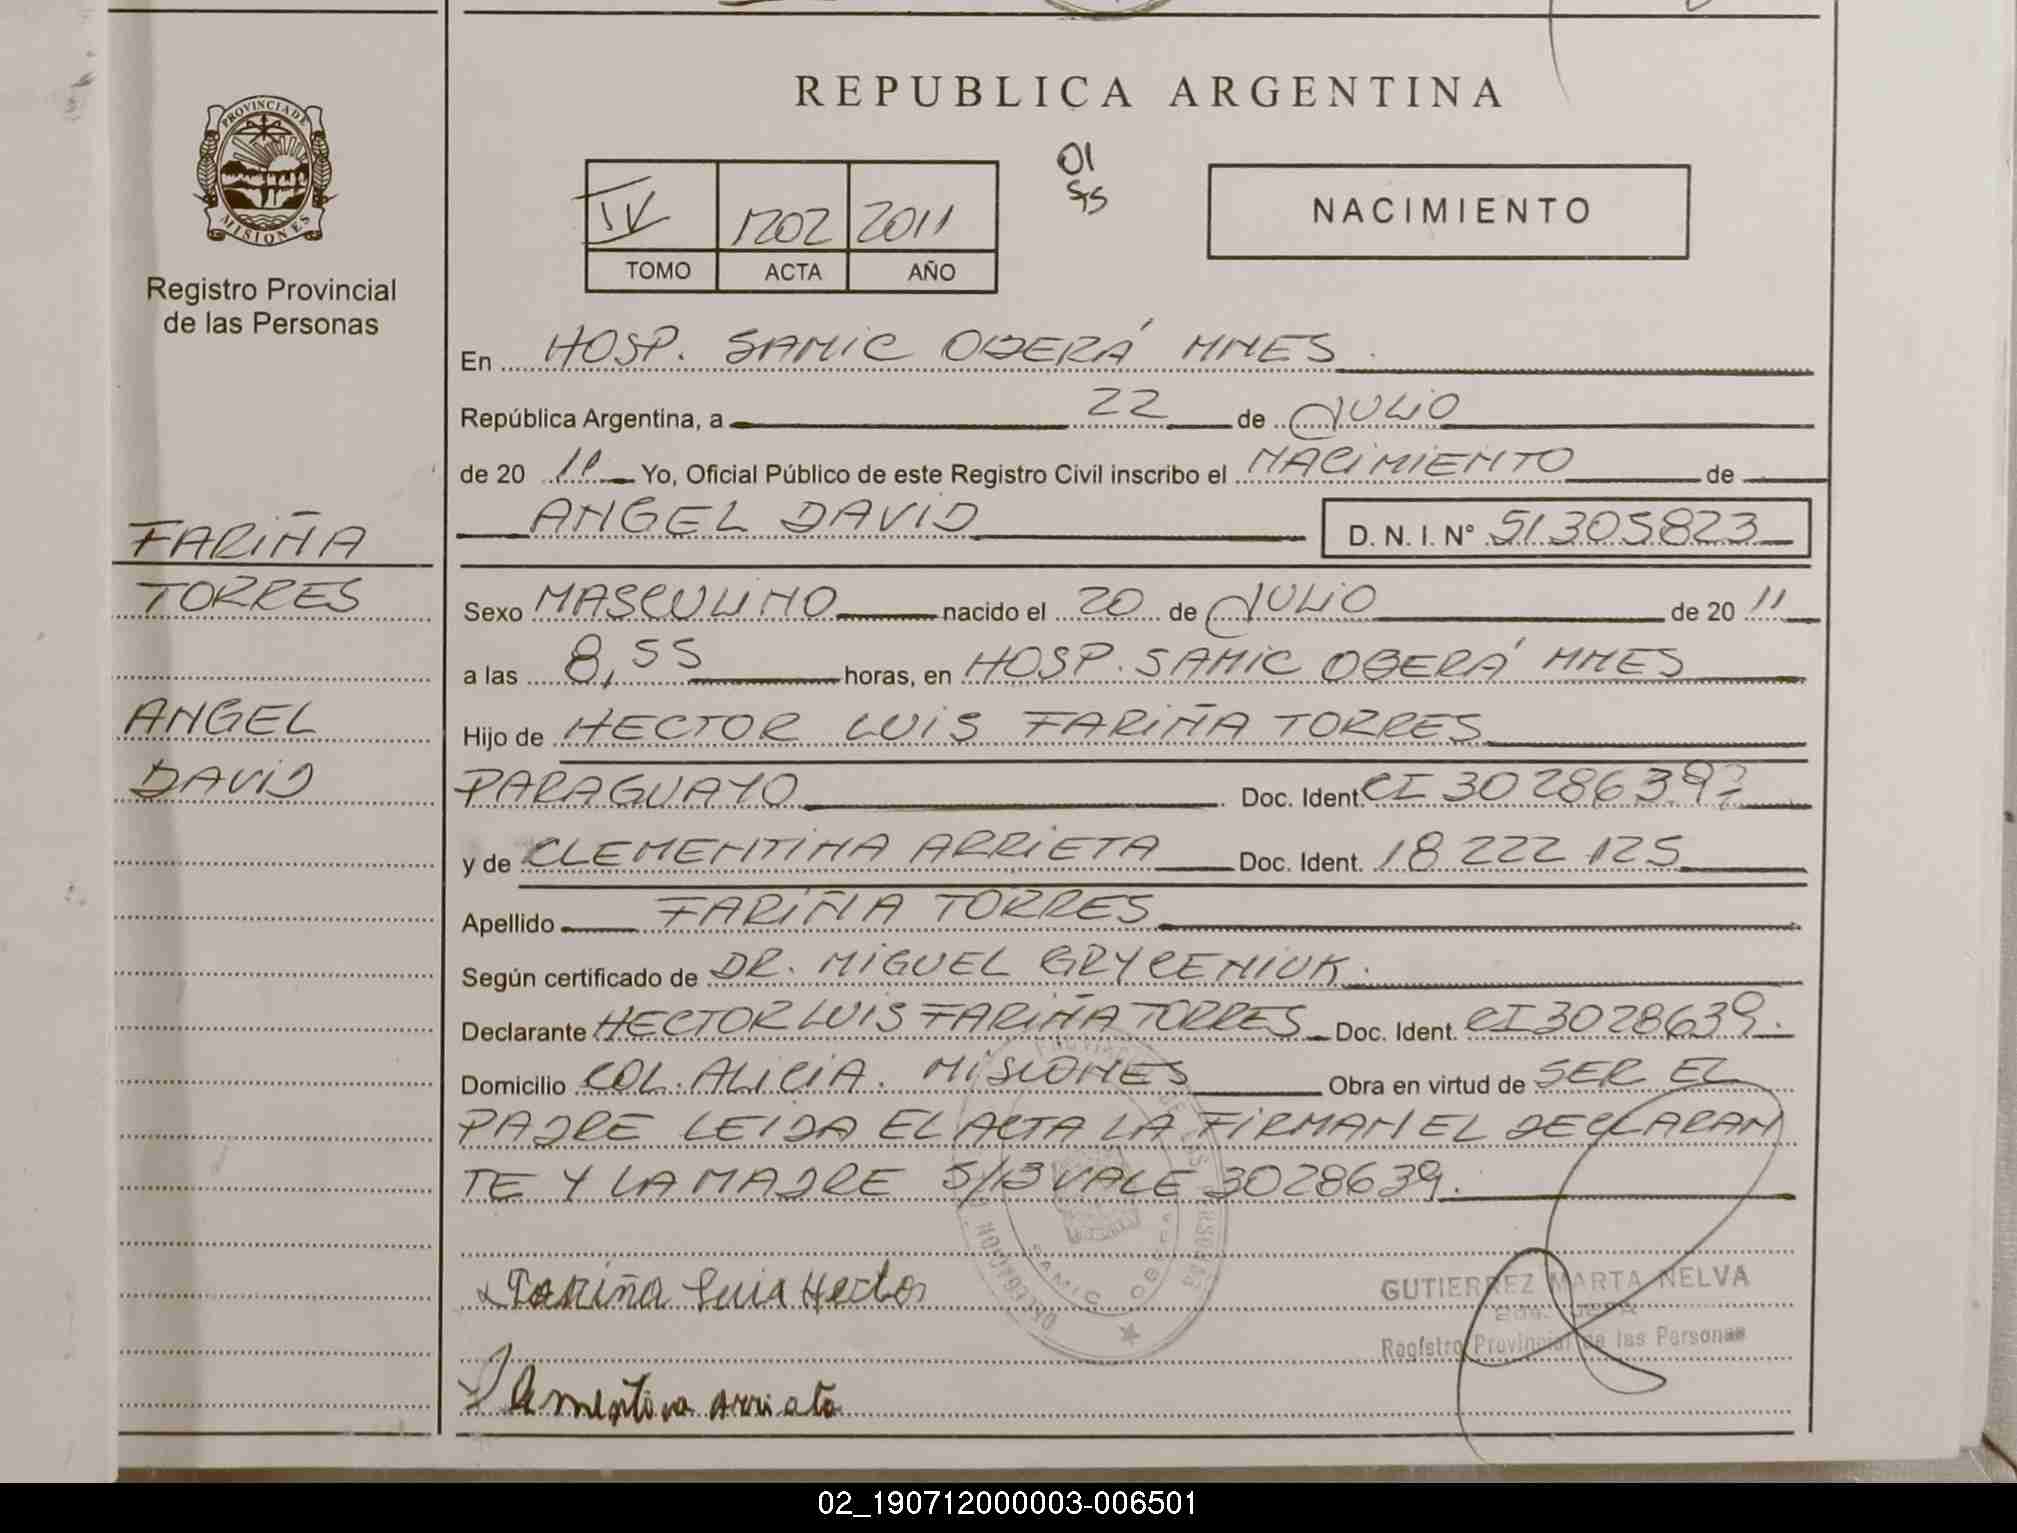 REPUBLICA ARGENTINA
PROVINCIA DE
MISIONES
Registro Provincial
de las Personas
01
IV 1202 2011
TOMO ACTA AÑO
NACIMIENTO
En HOSP. SAMIC OBERÁ MNES.
República Argentina, a 22 de JULIO
de 20 11 Yo, Oficial Público de este Registro Civil inscribo el NACIMIENTO de
ANGEL DAVID D. N. I. N° 51305823
FARIÑA
TORRES
ANGEL
DAVID
Sexo MASCULINO nacido el 20 de JULIO de 20 11
a las 8,55 horas, en HOSP. SAMIC OBERÁ MNES
Hijo de HECTOR LUIS FARIÑA TORRES
PARAGUAYO Doc. Ident CI 30286397
y de CLEMENTINA ARRIETA Doc. Ident. 18 222 125
Apellido FARIÑA TORRES
Según certificado de DR. MIGUEL GRYCENIUK.
Declarante HECTOR LUIS FARIÑA TORRES Doc. Ident. CI 3028639.
Domicilio COL. ALICIA. MISIONES Obra en virtud de SER EL
PADRE LEIDA EL ACTA LA FIRMAN EL DECLARAN
TE Y LA MADRE S/B VALE 3028639.
Fariña Luis Hector
GUTIERREZ MARTA NELVA
Registro Provincial de las Personas
SAMIC OBERA
arrieta
02_190712000003-006501